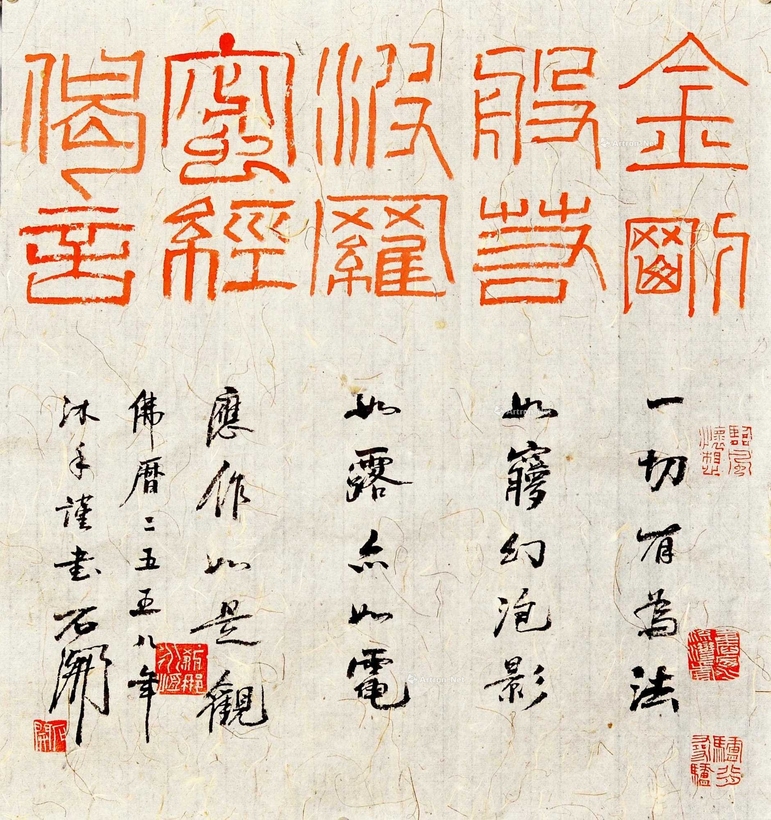 金剛
般若
波羅
蜜經
偈言
一切有為法
如夢幻泡影
如露亦如電
應作如是觀
佛曆二五五八年
沐手謹書石開
石開